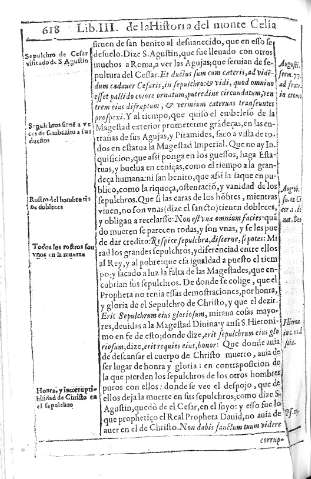 618 Lib. III. de la Historia del monte Celia
siruen de san benito al desuanecido, que en esso se
desuelo. Dize S. Agustin, que fue lleuado con otros
muchos a Roma, a ver las Agujas, que seruian de se-
pultura del Cesar. Et ductus sum cum cæteris, ad viden-
dum cadauer Cæsaris, in sepulchro: & vidi, quod omnino
esset pallido colore ornatum, putredine circundatum, ven-
trem eius disruptum, & vermium cateruas transeuntes
prospexi. Y al tiempo, que quiso el embeleso de la
Magestad exterior prometerme grãdeças, en las en-
trañas de sus Agujas, y Piramides, saco a vista de to-
dos en estatua la Magestad Imperial. Que no ay In-
quisicion, que assi ponga en los guessos, haga Esta-
tuas, y buelua en cenizas, como el tiempo a la gran-
deça humana: ni san benito, que assi la saque en pu-
blico, como la riqueça, ostentaciõ, y vanidad de los
sepulchros. Que si las caras de los hõbres, mientras
viuen, no son vnas (dize el sancto) cientos dobleces,
y obligan a recelarse: Non est vna omnium facies: quã-
do mueren se parecen todas, y son vnas, y se les pue-
de dar credito: Respice sepulchra, disserne, si potes: Mi-
rad los grandes sepulchros, y diferenciad entre ellos
al Rey, y al pobre: que essa igualdad a puesto el tiem-
po, y sacado a luz la falta de las Magestades, que en-
cubrian sus sepulchros. De donde se colige, que el
Propheta no tenia essas demostraciones, por honra,
y gloria de el Sepulchro de Christo, y que el dezir.
Erit Sepulchrum eius gloriosum, miraua cosas mayo-
res, deuidas a la Magestad Diuina: y assi S. Hieroni-
mo en fe de esto; donde dize, erit sepulchrum eius glo-
riosum, dize, erit requies eius, honor: Que donde auia
de descansar el cuerpo de Christo muerto, auia de
ser lugar de honra y gloria: en contraposicion de
la que pierden los sepulchros de los otros hombres
puros con ellos: donde se vee el despojo, que de
ellos deja la muerte en sus sepulchros, como dize S.
Agustin, que viò de el Cesar, en el suyo: y esso fue lo
que prophetiço el Real Propheta Dauid, no auia de
auer en el de Christo. Non dabis sanctum tuum videre
corrup-
Sepulchro de Cesar
visitado de S. Agustin
Sepulchros siruẽ a ve-
ces de sambenito a sus
dueños
Rostro del hombre tie
ne dobleces
Todos los rostros son
vnos en la muerte
Honra, y incorrupti-
bilidad de Christo en
el sepulchro